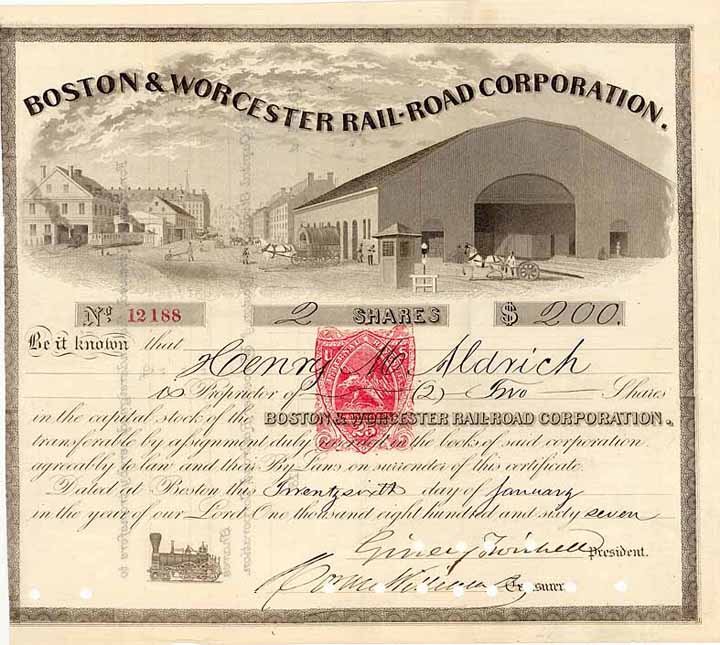 BOSTON & WORCESTER RAIL-ROAD CORPORATION.
No. 12188 2 SHARES $ 200.
Be it known that
Henry M. Aldrich
is Proprietor of (2) Two Shares
in the capital stock of the BOSTON & WORCESTER RAIL-ROAD CORPORATION.
transferable by assignment duly in the books of said corporation
agreeably to law and their By Laws on surrender of this certificate.
Dated at Boston this Twenty sixth day of January
in the year of our Lord One thousand eight hundred and sixty seven
U INTERNAL REV
25
Ginery Twichell President.
Treasurer